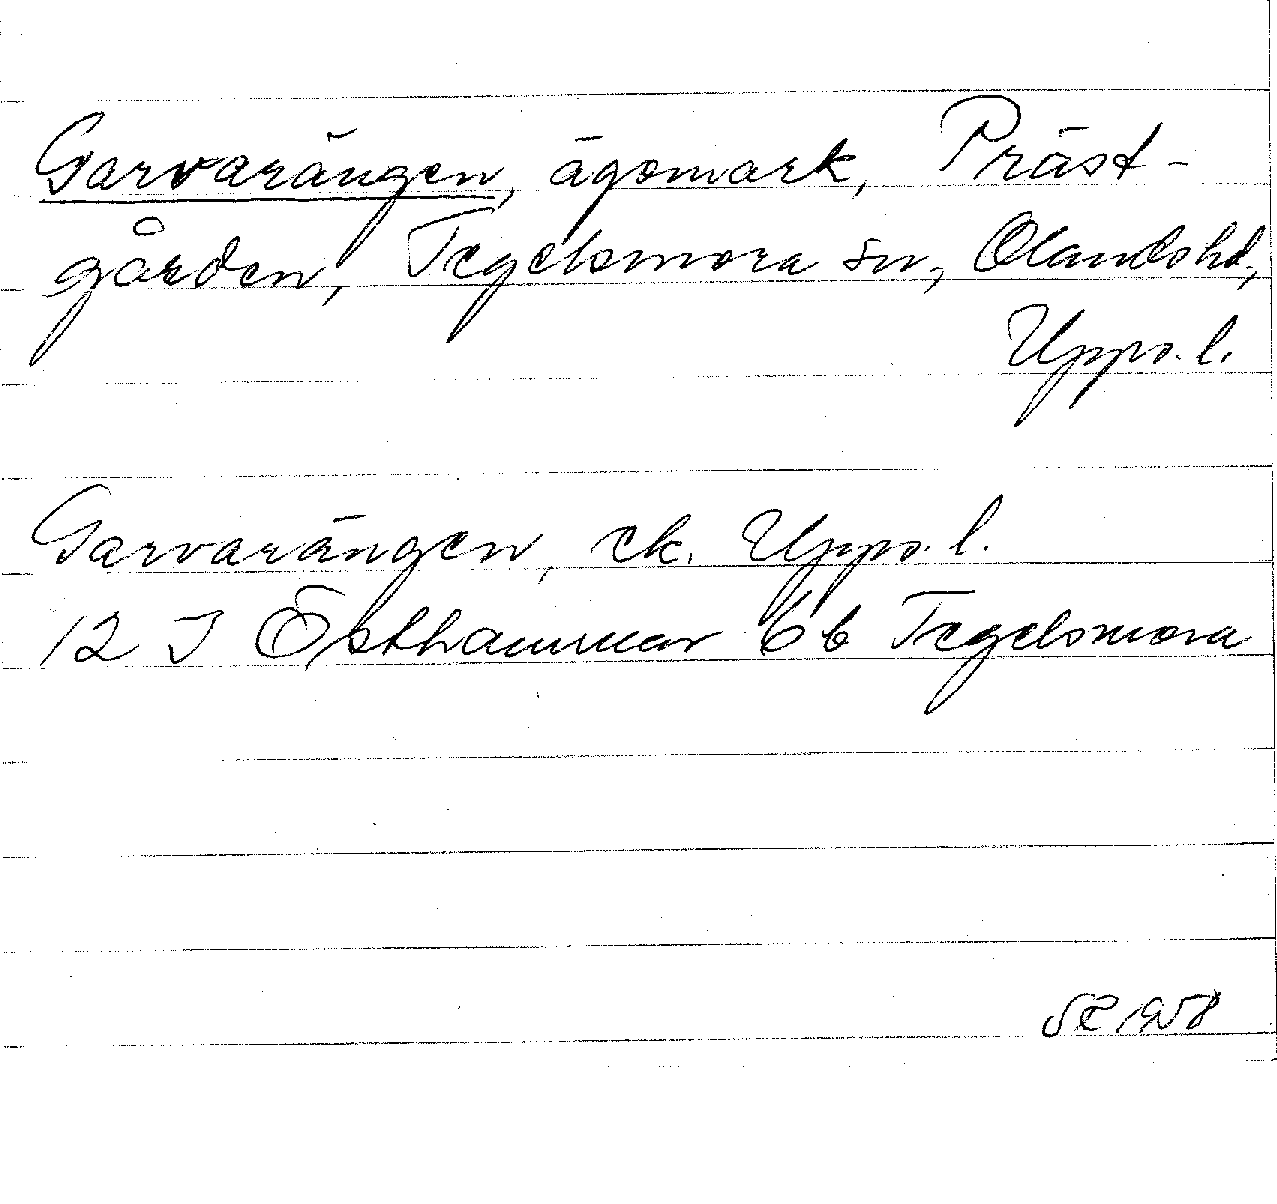 Garvarängen, ägomark, Präst-
gården, Tegelsmora sn, Olands hd,
Upps. l.
Garvarängen, ek. Upps. l.
12 I Östhammar 6b Tegelsmora
1958